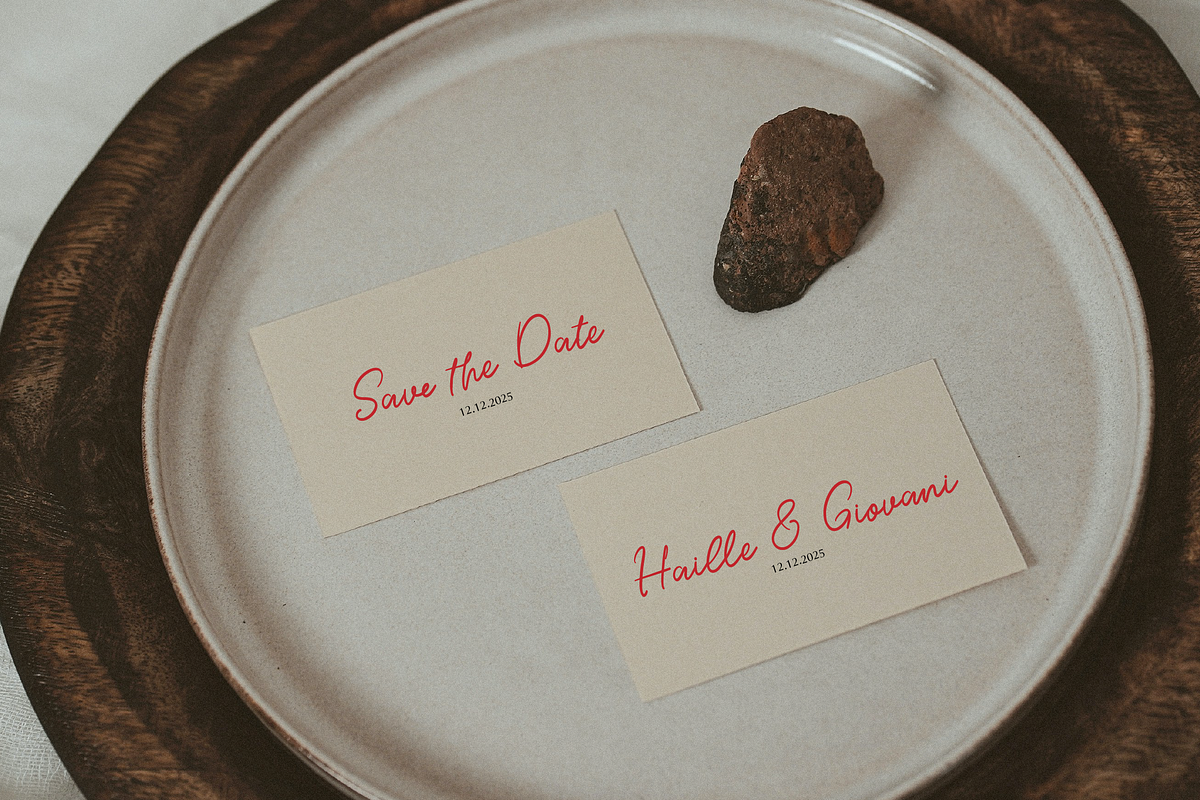 Save the Date
12.12.2025
Haille & Giovani
12.12.2025